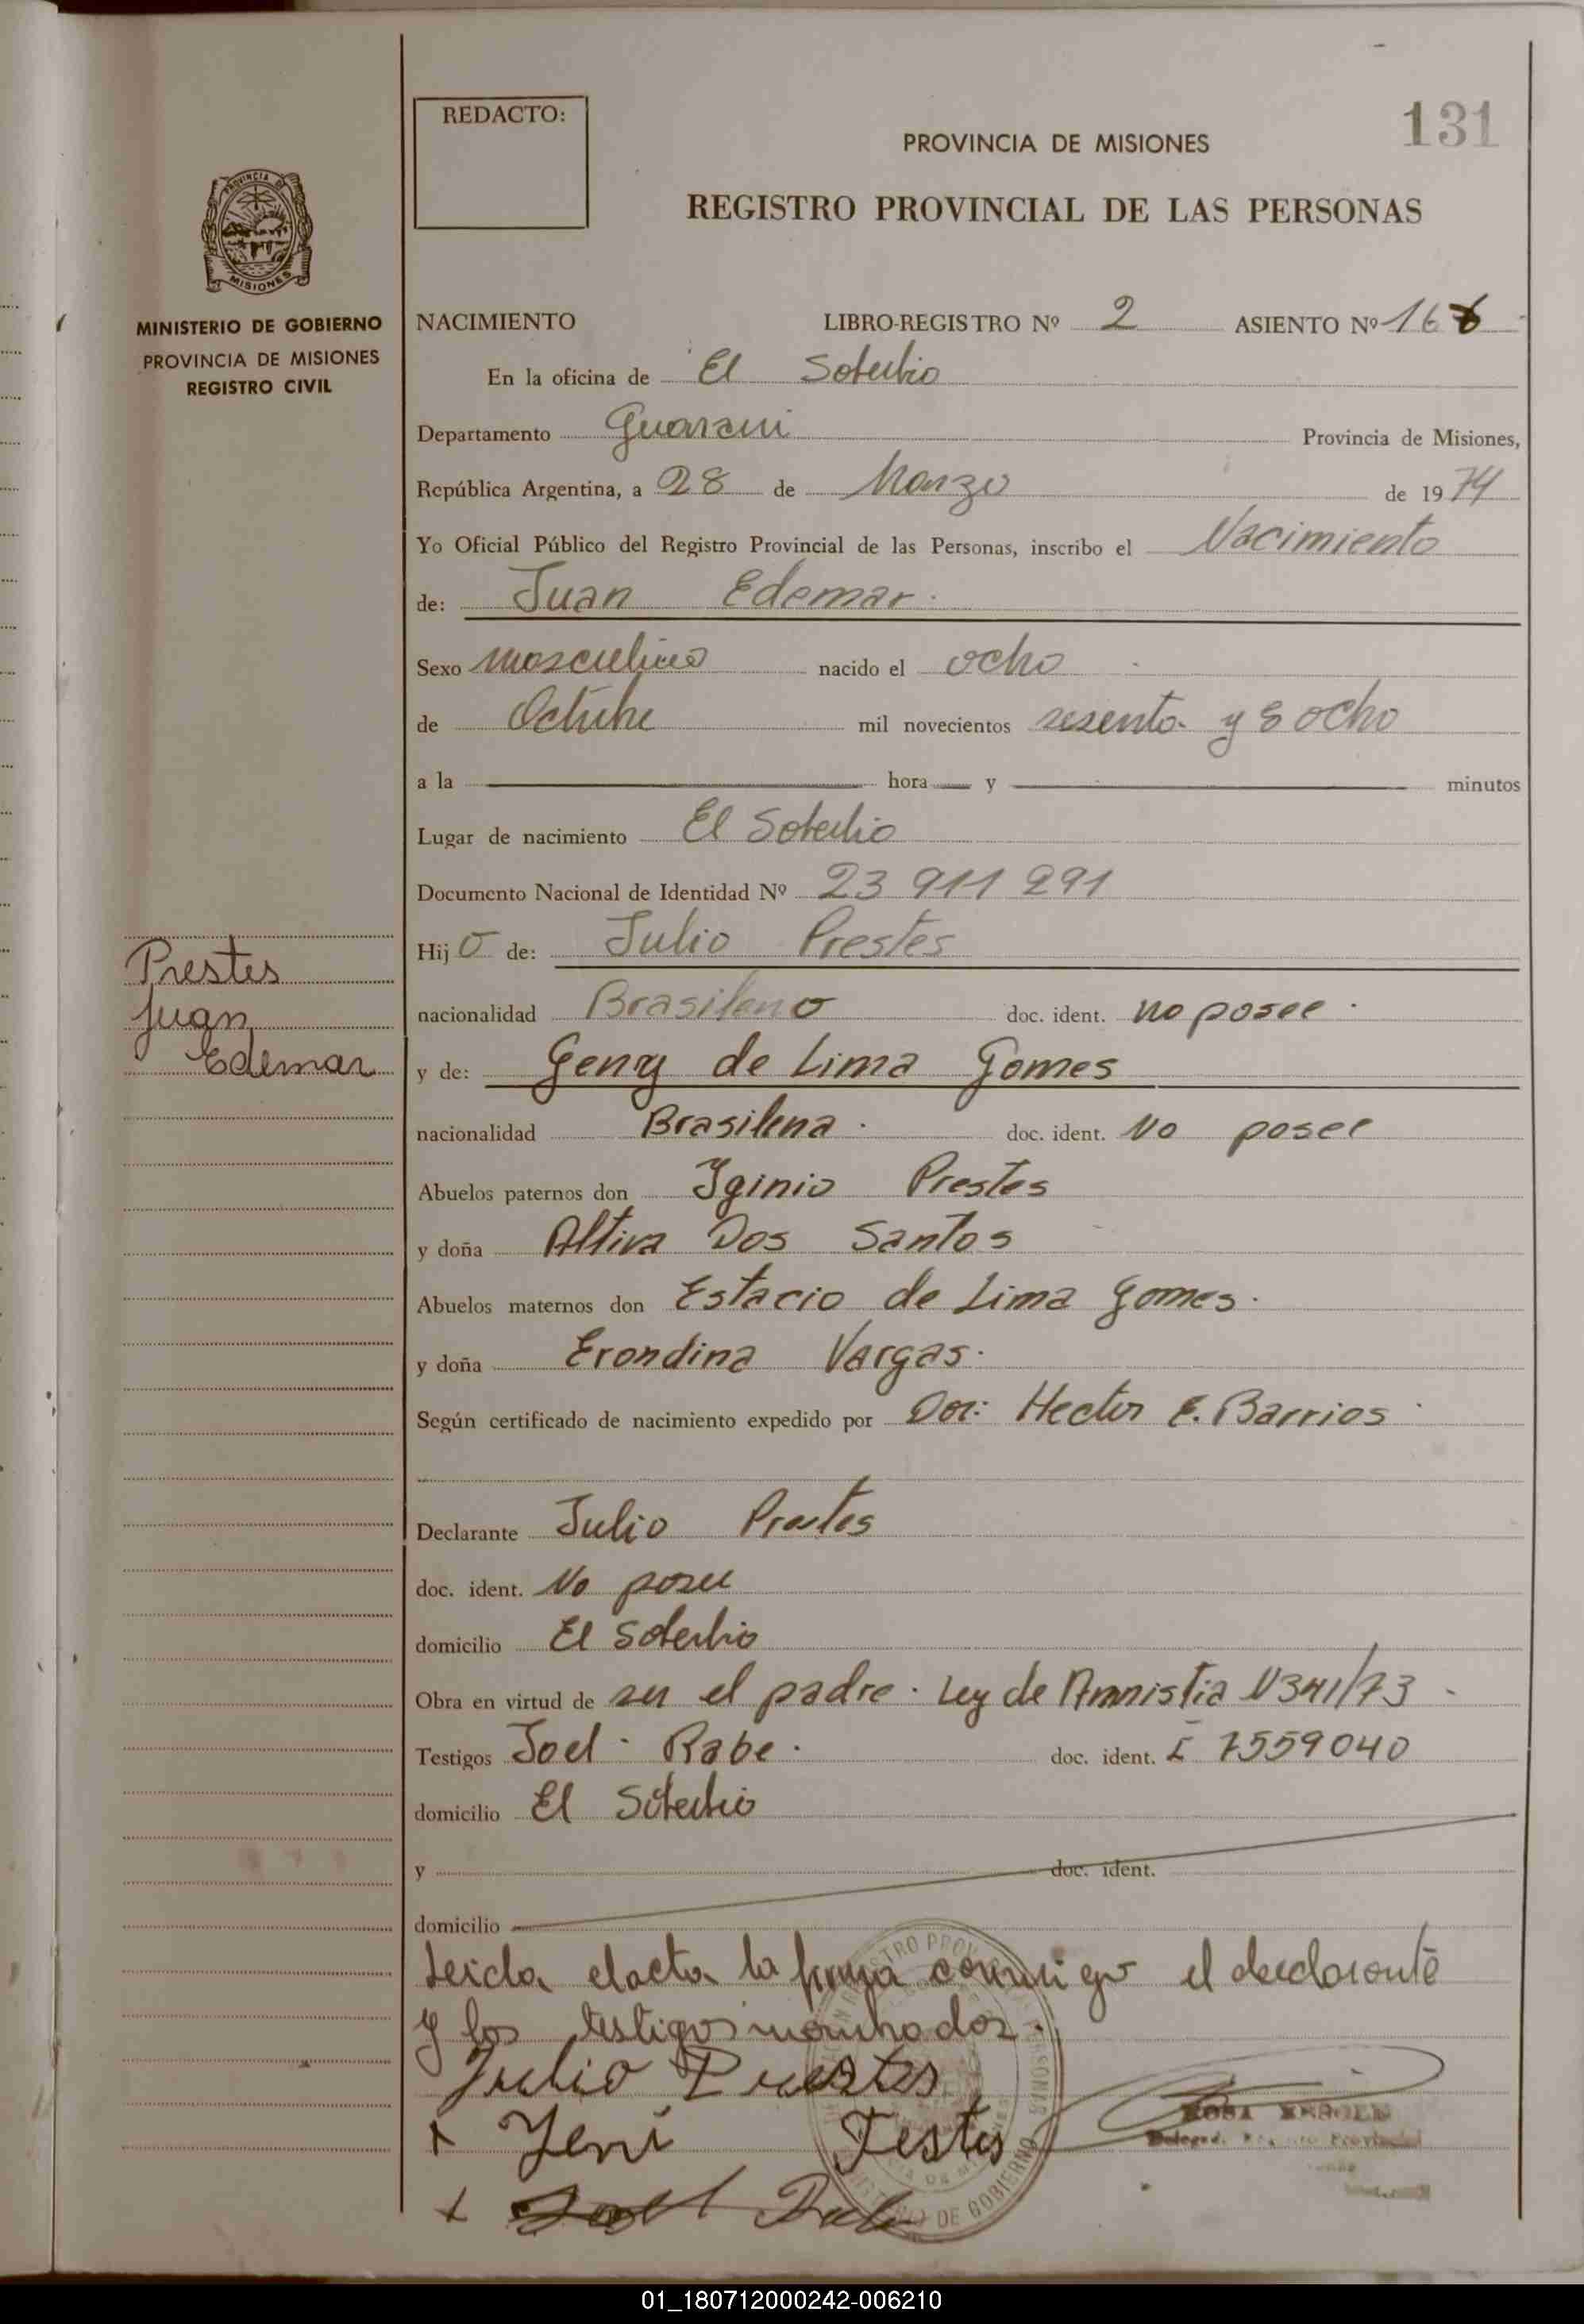 131
REDACTO:
PROVINCIA DE MISIONES
REGISTRO PROVINCIAL DE LAS PERSONAS
MISIONES
MINISTERIO DE GOBIERNO
PROVINCIA DE MISIONES
REGISTRO CIVIL
NACIMIENTO LIBRO-REGISTRO Nº 2 ASIENTO Nº 166
En la oficina de El Soberbio
Departamento Guarani Provincia de Misiones,
República Argentina, a 28 de Marzo de 1974
Yo Oficial Público del Registro Provincial de las Personas, inscribo el Nacimiento
de: Juan Edemar.
Sexo masculino nacido el ocho
de Octubre mil novecientos sesenta y ocho
a la hora y minutos
Lugar de nacimiento El Soberbio
Documento Nacional de Identidad Nº 23 911 291
Hijo de: Julio Prestes
nacionalidad Brasileno doc. ident. no posee.
y de: Geny de Lima Gomes
nacionalidad Brasilena. doc. ident. No posee
Abuelos paternos don Iginio Prestes
y doña Altiva Dos Santos
Abuelos maternos don Estacio de Lima Gomes.
y doña Erondina Vargas.
Según certificado de nacimiento expedido por Doc: Hector E. Barrios
Declarante Julio Prestes
doc. ident. No posee
domicilio El Soberbio
Obra en virtud de ser el padre. Ley de Amnistia N341/73
Testigos Joel Rabe. doc. ident. I 7559040
domicilio El Soberbio
y doc. ident.
domicilio
Leida el acta la firma conmigo el declarante
y los testigos
Julio Prestes
Prestes
Juan
Edemar
01_180712000242-006210